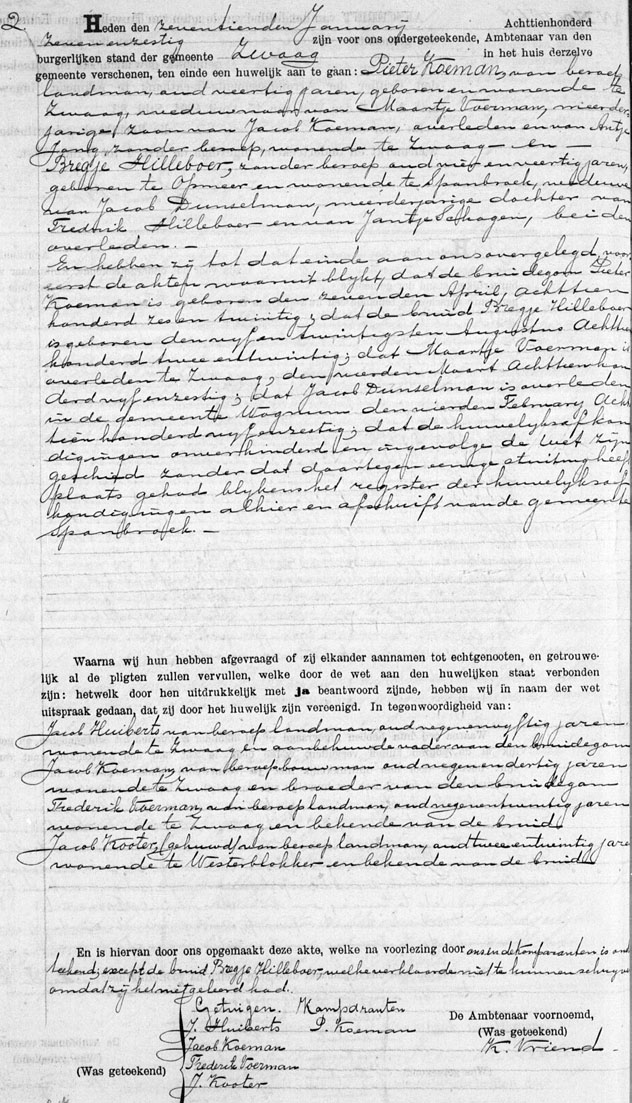 2.
Heden den zeventienden January Achttienhonderd
zevenenzestig zijn voor ons ondergeteekende, Ambtenaar van den
burgerlijken stand der gemeente Zwaag in het huis derzelve
gemeente verschenen, ten einde een huwelijk aan te gaan: Pieter Koeman, van beroep
landman, oud veertig jaren, geboren en wonende te
Zwaag, weduwnaar van Maartje Voerman, meerder
jarige zoon van Jacob Koeman, overleden en van Antje
Jong, zonder beroep, wonende te Zwaag — en —
Bregje Hilleboer, zonder beroep oud vier en veertig jaren,
geboren te Opmeer en wonende te Spanbroek, weduwe
van Jacob Dunselman, meerderjarige dochter van
Frederik Hilleboer en van Jantje Schagen, beiden
overleden. —
En hebben zij tot dat einde aan ons overgelegd, voor
eerst de akten waaruit blykt, dat de bruidegom Pieter
Koeman is geboren den zevenden April Achttien
honderd zes en twintig; dat de bruid Bregje Hilleboer
is geboren den vyf en twintigsten Augustus Achttien
honderd twee en twintig; dat Maartje Voerman is
overleden te Zwaag, den vierden Maart Achttienhon
derd vyfenzestig; dat Jacob Dunselman is overleden
in de gemeente Wognum den vierden February Acht
tien honderd vyfenzestig; dat de huwelyksafkon
digingen onverhinderd en ingevolge de wet zijn
geschied zonder dat daartegen eenige stuiting heeft
plaats gehad blykens het register der huwelyksaf
kondigingen alhier en afschrift van de gemeente
Spanbroek. —
Waarna wij hun hebben afgevraagd of zij elkander aannamen tot echtgenooten, en getrouwe-
lijk al de pligten zullen vervullen, welke door de wet aan den huwelijken staat verbonden
zijn: hetwelk door hen uitdrukkelijk met ja beantwoord zijnde, hebben wij in naam der wet
uitspraak gedaan, dat zij door het huwelijk zijn vereenigd. In tegenwoordigheid van:
Jacob Huiberts van beroep landman, oud negenenvyftig jaren
wonende te Zwaag en aanbehuwde vader van den bruidegom
Jacob Koeman, van beroep bouwman oud negen en dertig jaren
wonende te Zwaag en broeder van den bruidegom
Frederik Voerman, van beroep landman, oud negenentwintig jaren
wonende te Zwaag en bekende van de bruid
Jacob Kooter, (gehuwd) van beroep landman, oud twee entwintig jaren
wonende te Westerblokker en bekende van de bruid
En is hiervan door ons opgemaakt deze akte, welke na voorlezing door ons en de komparanten is ond
teekend, except de bruid Bregje Hilleboer, welke verklaarde niet te kunnen schryven
omdat zij het niet geleerd had.
Getuigen. Kompdranten
J. Huiberts P. Koeman
De Ambtenaar voornoemd,
(Was geteekend)
Jacob Koeman
K. Vriend
Frederik Voerman
(Was geteekend)
J. Kooter